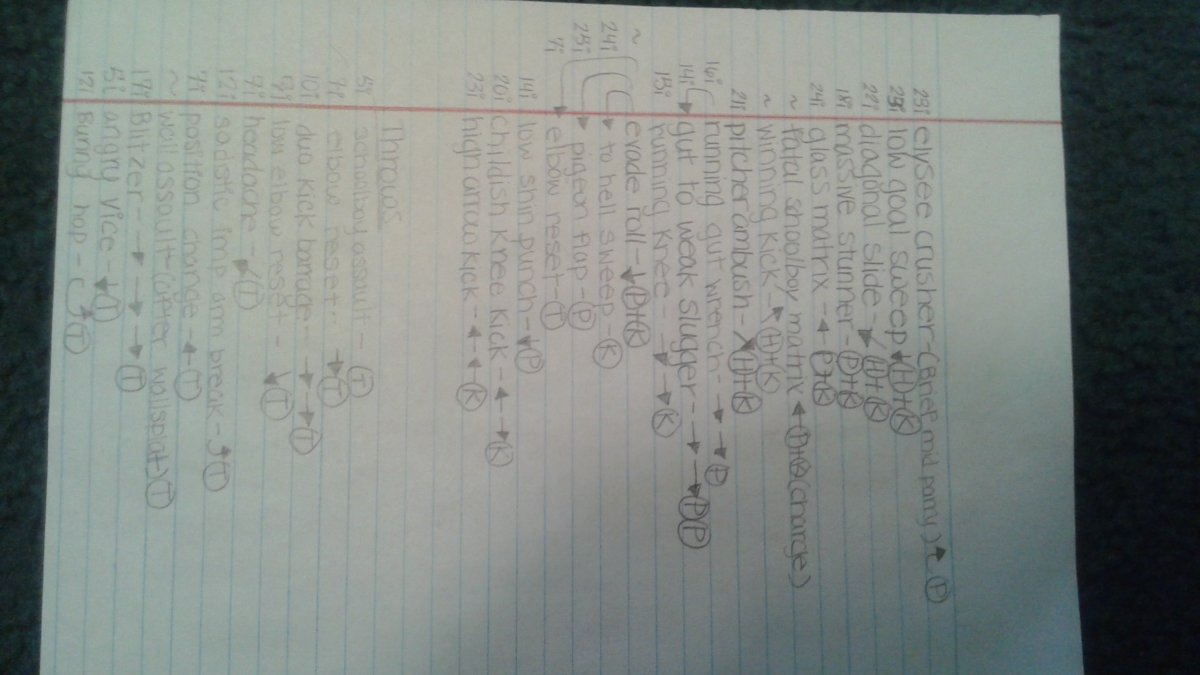 23i elysee crusher-(Brief mid parry) ↰ Ⓟ
25i low goal sweep ↓Ⓗ+Ⓚ
22i diagonal slide - ↙Ⓗ+Ⓚ
18i massive stunner - Ⓟ+Ⓚ
24i glass matrix - ← Ⓟ+Ⓚ
~ fatal shoolboy matrix ←Ⓗ+Ⓚ(charge)
~ winning kick- ↗Ⓗ+Ⓚ
21i pitcher ambush- ↘Ⓗ+Ⓚ
16i running gut wrench- → → Ⓟ
14i ↳ gut to weak slugger- → → ⓅⓅ
18i running knee - → → Ⓚ
~ evade roll - ↓Ⓟ+Ⓚ
24i ↳ to hell sweep - Ⓚ
25i ↳ pigeon flap - Ⓟ
7i ↳ elbow reset- Ⓣ
14i low shin punch - ↓Ⓟ
20i childish knee kick - ← → Ⓚ
23i high arrow kick - ← ← Ⓚ
Throws
5i schoolboy assault - Ⓣ
7i elbow reset.. →Ⓣ
10i duo kick barrage- → →Ⓣ
9i low elbow reset - ↘Ⓣ
7i headache - ↙Ⓣ
12i sadistic imp arm break - Ⓣ
7i position change ← Ⓣ
~ wall assault-(after wallsplat) Ⓣ
17i Blitzer - → → → Ⓣ
5i angry vice - ↓Ⓣ
12i Bunny hop - Ⓣ